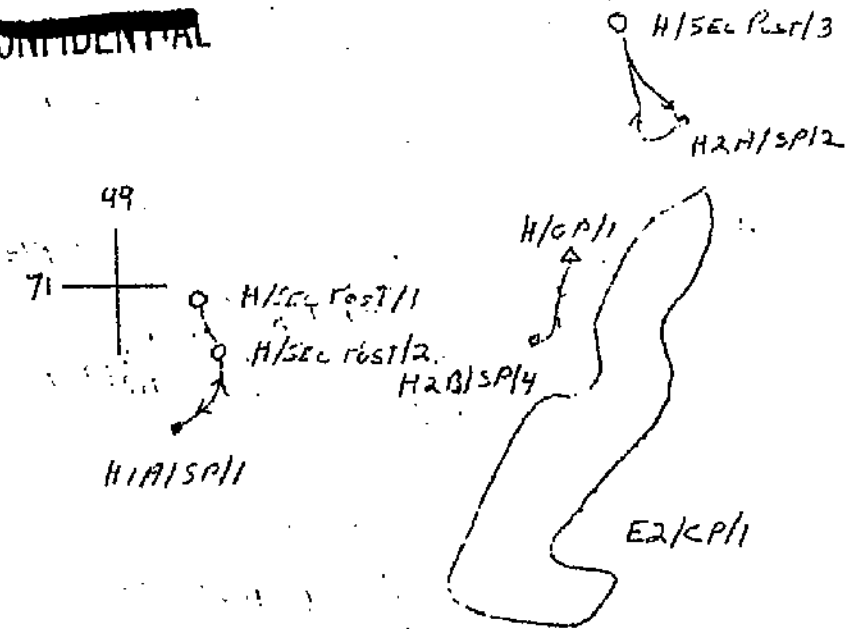 CONFIDENTIAL
H/SEC Post/3
H2H/SP/2
49
H/OP/1
71
H/SEC Post/1
H/SEC Post/2
H2B/SP/4
H1A/SP/1
E2/CP/1